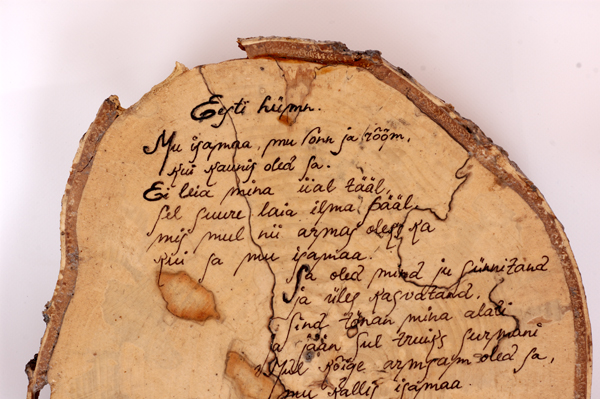 Eesti hümn.
Mu isamaa, mu õnn ja rõõm,
kui kaunis oled sa.
Ei leia mina iial tääl,
sel suure laia ilma pääl,
mis mul nii armas oleks ka
kui sa mu isamaa.
Sa oled mind ju sünnitand
ja üles kasvatand,
Sind tänan mina alati
ja jään sul truiks surmani
Mul kõige armsam oled sa,
mu kallis isamaa.